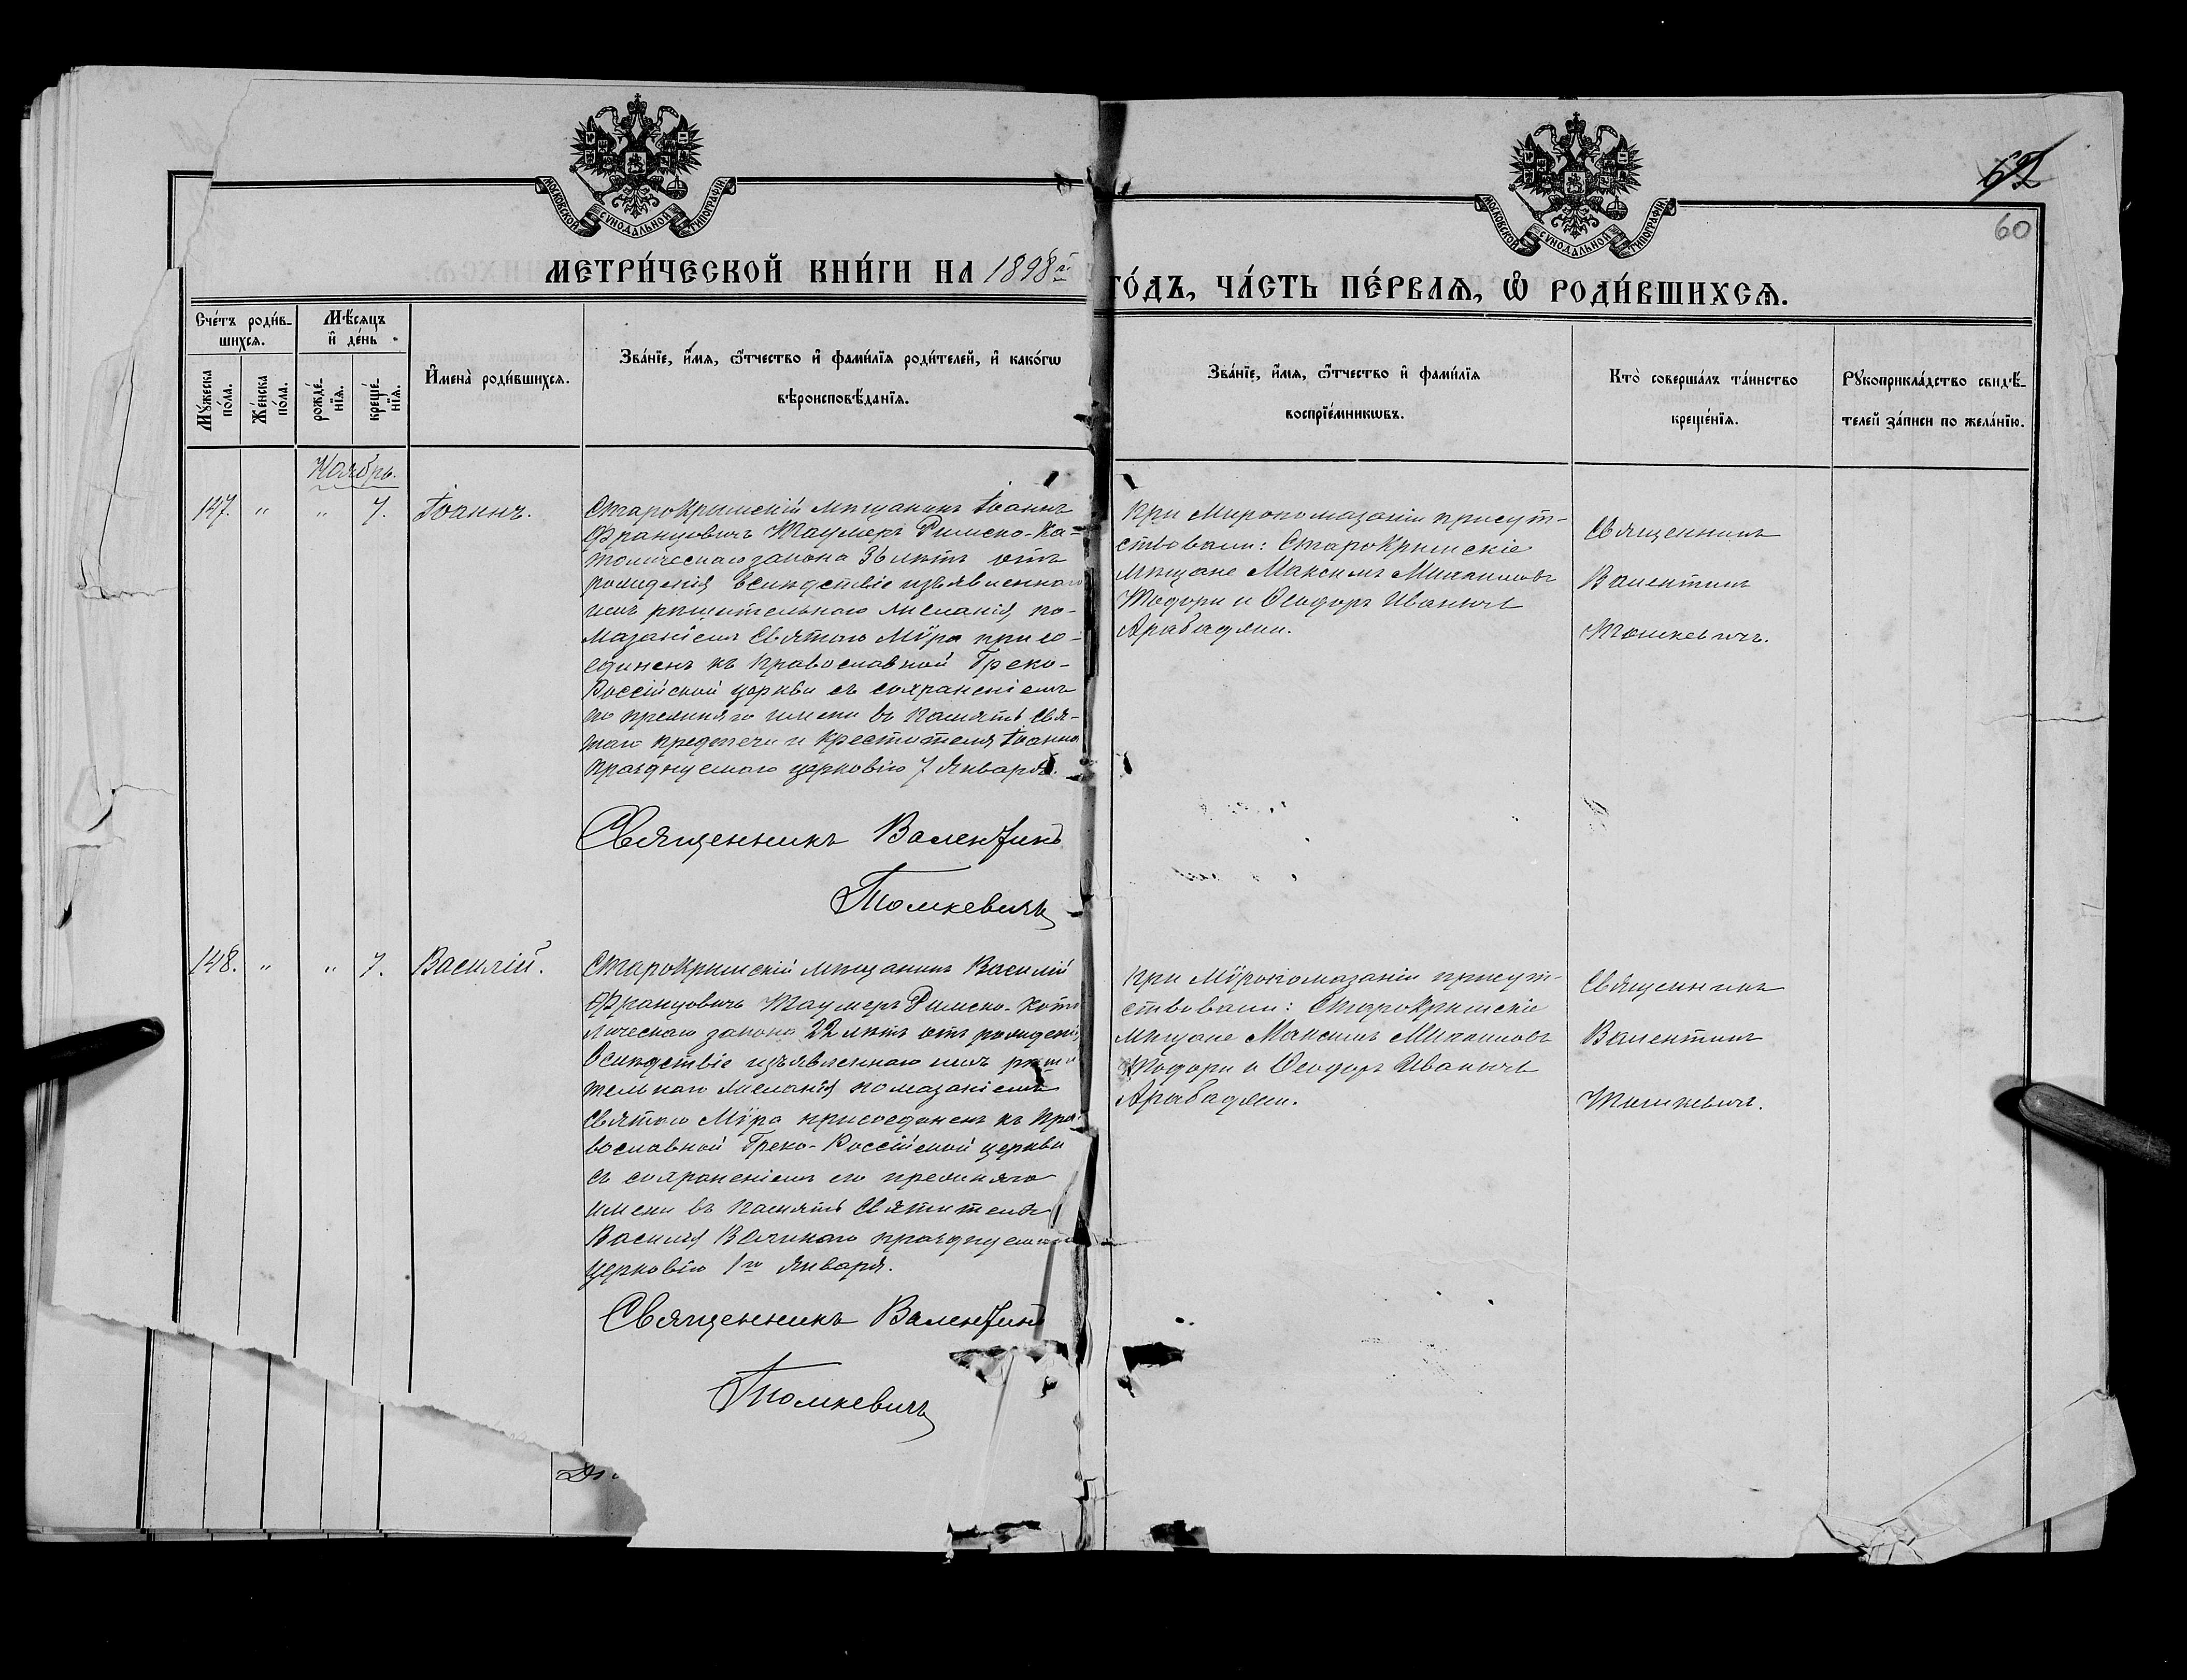 МОСКОВСКОЙ СѴНОДАЛЬНОЙ ТИПОГРАФІИ
МОСКОВСКОЙ СѴНОДАЛЬНОЙ ТИПОГРАФІИ
62
60
МЕТРИ́ЧЕСКОЙ КНИ́ГИ НА 1898й
ГО́ДЪ, ЧА́СТЬ ПЕ́РВАѦ, Ѡ РОДИ́ВШИХСѦ.
Сче́тъ роди́в-
шихсѧ.
Мѣ́сѧцъ
и҆ де́нь
Мꙋ́жеска
по́ла.
Же́нска
по́ла.
рожде́-
нїѧ.
креще́-
нїѧ.
И҆мена̀ роди́вшихсѧ.
Зва́нїе, и҆́мѧ, ѻ҆́тчество и҆ фами́лїѧ роди́телей, и҆ како́гѡ
вѣроисповѣ́данїѧ.
Зва́нїе, и҆́мѧ, ѻ҆́тчество и҆ фами́лїѧ
воспрїе́мникѡвъ.
Кто̀ соверша́лъ та́инство
креще́нїѧ.
Рꙋкоприкла́дство свидѣ́-
телей за́писи по жела́нїю.
Ноябрь.
147. " " 7. Іоаннъ.
Старокрымскій мѣщанинъ Іоаннъ
Францовичъ Таумеръ Римско-Ка-
толическаго закона 36 лѣтъ отъ
рожденія вслѣдствіе изъявленнаго
имъ рѣшительнаго желанія, по-
мазаніемъ Святаго Мѵра присо-
единенъ къ Православной Греко-
Россійской церкви съ сохраненіемъ
по прежняго имени въ память Свя-
таго предтечи и Крестителя Іоанна
празднуемаго церковію 7 Января.
Священникъ Валентинъ
Томкевичъ
При Миропомазаніи присут-
ствовали: Старокрымскіе
мѣщане Максимъ Михаиловъ
Тодори и Ѳеодоръ Иванычъ
Арабаджи.
Священникъ
Валентинъ
Томкевичъ.
148. " " 7. Василій.
Старокрымскій мѣщанинъ Василій
Францовичъ Таумеръ Римско-Като
лическаго закона 22 лѣтъ отъ рожденія,
вслѣдствіе изъявленнаго имъ рѣши
тельнаго желанія помазаніемъ
Святаго Мѵра присоединенъ къ Пра
вославной Греко-Россійской церкви
съ сохраненіемъ его прежняго
имени въ память Святителя
Василія Великаго празднуемаго
церковію 1го Января.
Священникъ Валентинъ
Томкевичъ
При Мѵропомазаніи присут-
ствовали: Старокрымскіе
мѣщане Максимъ Михаиловъ
Тодори и Ѳеодоръ Иванычъ
Арабаджи.
Священникъ
Валентинъ
Томкевичъ.